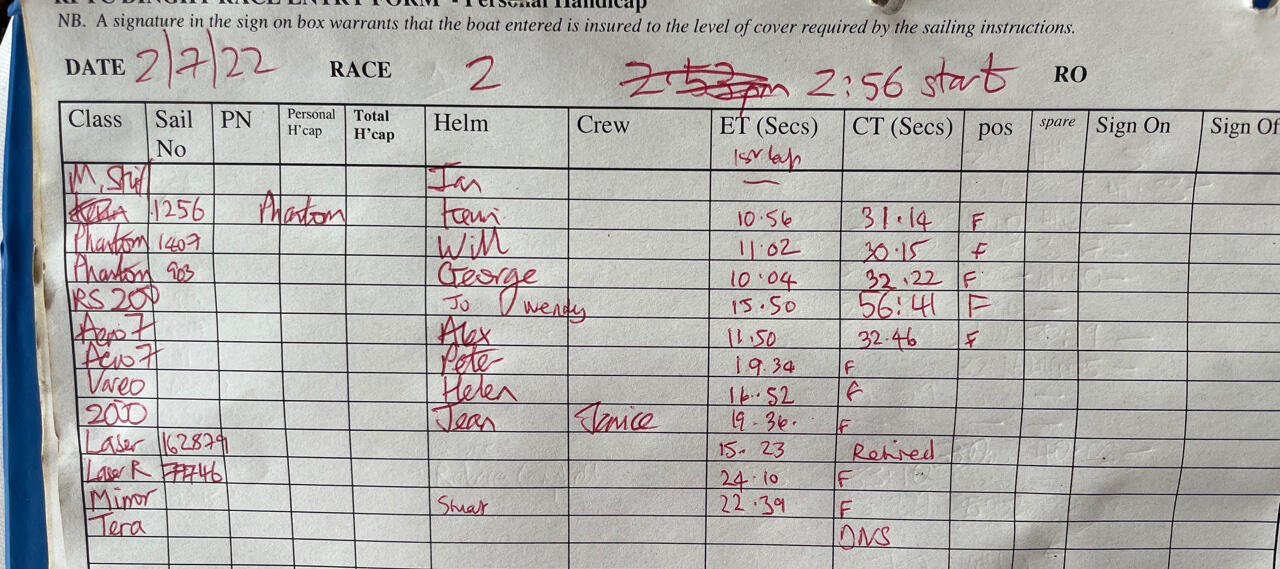 RACE ENTRY FORM - Personal Handicap
NB. A signature in the sign on box warrants that the boat entered is insured to the level of cover required by the sailing instructions.
DATE 2/7/22 RACE 2 2:53pm 2:56 start RO
Class Sail No PN Personal H'cap Total H'cap Helm Crew ET (Secs) 1st lap CT (Secs) pos spare Sign On Sign Of
Ian —
1256 Phantom 10.56 31.14 F
Phantom 1407 Will 11.02 30.15 F
Phantom 903 George 10.04 32.22 F
RS 200 Jo wendy 15.50 56:41 F
Aero 7 Alex 11.50 32.46 F
Aero 7 Peter 19.34 F
Vareo Helen 16.52 F
2000 Jean Janice 19.36. F
Laser 162879 15.23 Retired
Laser R 24.10 F
Minor 22.39 F
Tera DNS